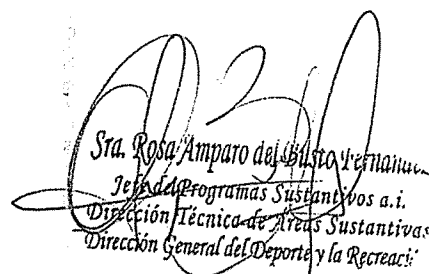 Sra. Rosa Amparo del Busto Fernán
Jefe de Programas Sustantivos a.i.
Dirección Técnica de Áreas Sustantivas
Dirección General del Deporte y la Recreaci